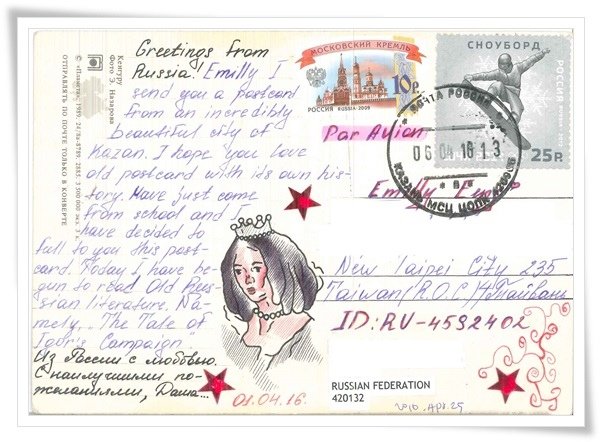 Greetings from
Russia! Emilly I
send you a postcard
from an incredibly
beautiful city of
Kazan. I hope you love
old postcard with its own his-
tory. Have just come
from school and I
have decided to
fall to you this post-
card. Today I have be-
gun to read Old Rus-
sian literature. Na-
mely, "The Tale of
Igor's Campaign"
Из России с любовью.
С наилучшими по-
желаниями, Даша...
01.04.16.
Кенгуру
Фото Э. Назарова
© «Планета», 1989. 24/Яз-8789. 2885. 3 500 000 экз. 3 к.
ОТПРАВЛЯТЬ ПО ПОЧТЕ ТОЛЬКО В КОНВЕРТЕ
МОСКОВСКИЙ КРЕМЛЬ
10р
РОССИЯ RUSSIA·2009
СНОУБОРД
РОССИЯ
25R
ПОЧТА РОССИИ
06 04 16 13
КАЗАНЬ МСЦ ЦОПП
Par Avion
Emilly
New Taipei City 235
Taiwan (R.O.C.) Тайвань
ID: RU-4592402
RUSSIAN FEDERATION
420132
2016. Apr. 25